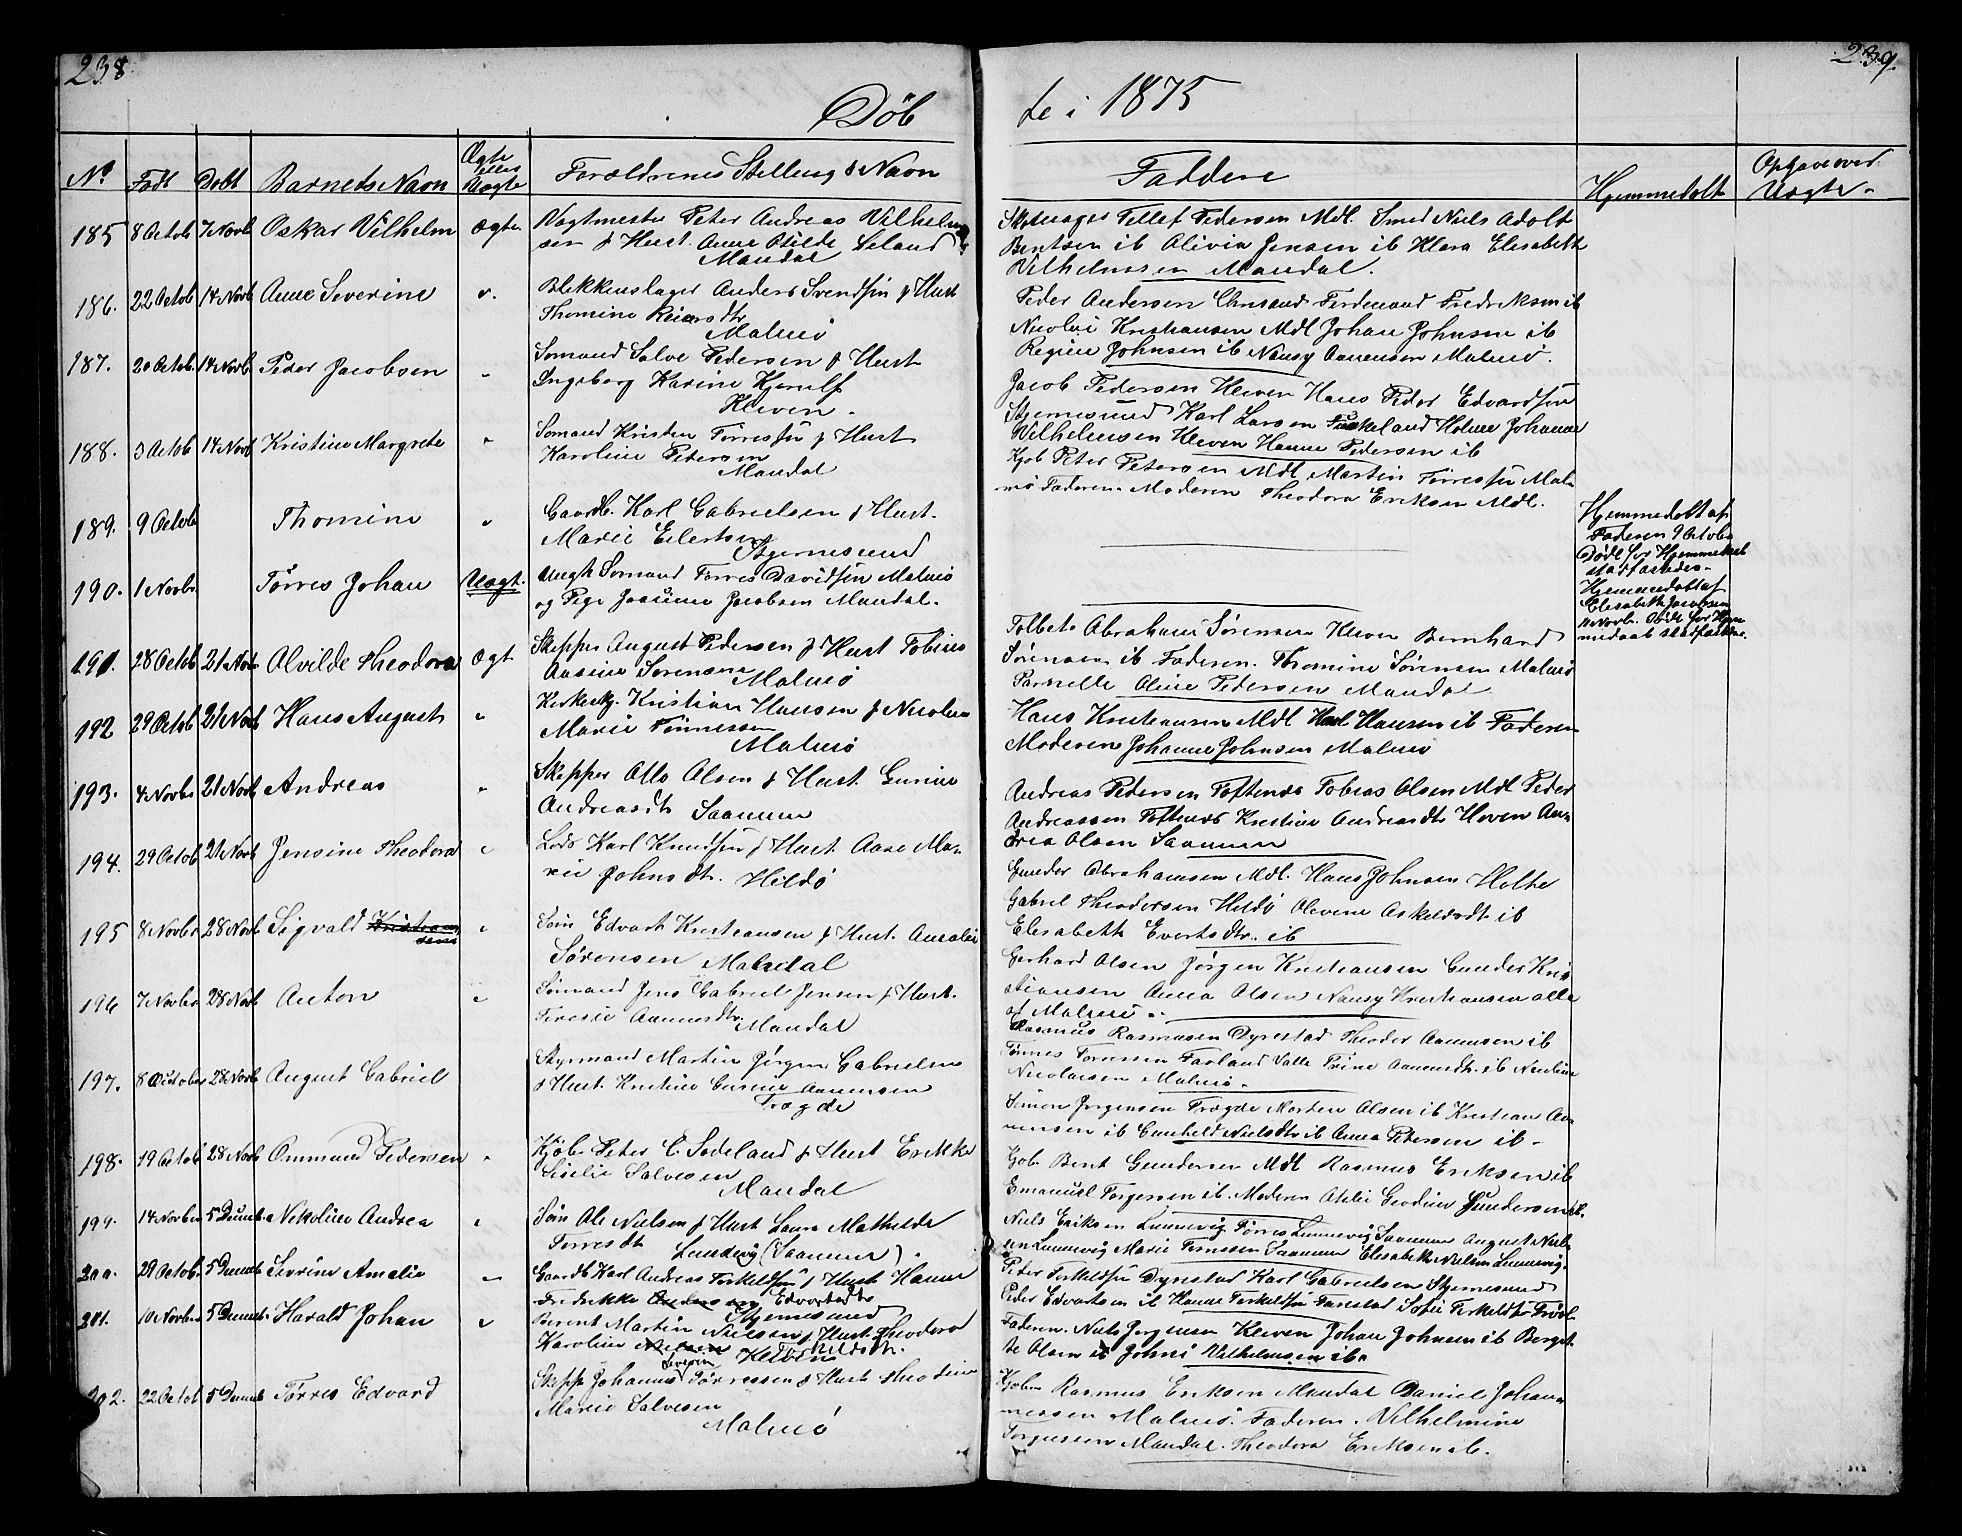 238.
239.
Døb
te i 1875
No
Født
Døbt
Barnets Navn
Ægte
eller
Uægte
Forældrenes Stilling & Navn
Faddere
Hjemmedøbt
Opgave over
Uægte
185 8 Octob 7 Novb Oskar Vilhelm ægte
Vagtmester Peter Andreas Vilhelm
sen & Hust. Anne Otilde Leland
Mandal
Tellef Pedersen Mdl. Smed Niels Adolt
Bentsen ib Olivia Jensen ib Klara Elisabeth
Vilhelmssen Mandal.
186. 22 Octob 14 Novb Anne Severine
Blikkenslager Anders Svendsen & Hust
Thomine Reiersdtr
Malmø
Peder Andersen Chrsand Ferdenand Fredriksen ib
Nicolai Kristiansen Mdl Johan Johnsen ib
Regine Johnsen ib Nansy Aanensen Malmø.
187. 20 Octob. 14 Novb Peder Jacobsen "
Sømand Salve Pedersen & Hust
Ingeborg Karine
Kleven.
Jacob Pedersen Kleven Hans Peder Edvardsen
Stjernesund Karl Larsen Holme Johanne
Vilhelmsen Kleven Hanne Pedersen ib
188. 3 Octob 14 Novb Kristine Margrete "
Sømand Kristen Tørressen & Hust
Karoline Petersen
Mandal
Kjøb Peter Petersen Mdl Martin Tørressen Mal-
mø Faderen. Moderen Theodora Eriksen Mdl.
189. 9 Octob Thomine "
Gaardb. Karl Gabrielsen & Hust.
Marie Eilertsen
Stjernesund
Hjemmedøbt af
Faderen 9 Octobr
Døde før Hjemmedaab
stadfæstedes.
190. 1 Novbr Tørres Johan Uægt.
Ungk Sømand Tørres Davidsen Malmø
og Pige Jacobsen Mandal.
Hjemmedøbt af
Elisabeth Jacobsen
Novbr. Døde før Hjem
medaab stadfæstedes.
191. 28 Octob 21 Novb Alvilde Theodora ægt
Skipper August Pedersen & Hust Tobine
Aasine Sørensen
Malmø
Tolbet. Abraham Sørensen Kleven Bernhard
Sørensen ib Faderen. Thomine Sørensen Malmø
Pernelle Oline Pedersen Mandal
192 29 Octob 21 Novb Hans August "
Kristian Hansen & Nicoline
Marie Tønnessen
Malmø
Hans Kristiansen Mdl Karl Hansen ib Faderen
Moderen Johanne Johnsen Malmø
193. 4 Novbr 21 Novb Andreas "
Skipper Otto Olsen & Hust. Gunine
Andreasdtr Saanum
Andreas Pedersen Toftenes Tobias Olsen Mdl Peder
Andreassen Toftenes Kristine Andreasdtr Hoven An-
drea Olsen Saanum
194. 29 Octob 21 Novb Jensine Theodora "
Lods Karl Knudsen & Hust Aase Ma-
rie Johnsdtr. Hildø
Gunder Abrahamsen Mdl. Hans Johnsen Holte
Gabriel Theodorsen Hildø Olevine Askeldsdtr ib
Elisabeth Evertsdtr. ib
195 8 Novbr 28 Novb Sigvald Kristian
sens "
Søm Edvart Kristiansen & Hust. Amalie
Sørensen Mandal
Gerhard Olsen Jørgen Kristiansen Gunder Kris
tiansen Anna Olsen Nansy Kristiansen alle
af Malmø.
196 7 Novbr 28 Novb Anton "
Sømand Jens Gabriel Jensen & Hust.
Teresie Aanensdtr.
Mandal
Rasmus Rasmusen Dyrestad Theodor Aanensen ib
Tønnes Tønnesen Farland Valle Trine Aanensdtr. ib Nicoline
Nicolaisen Malmø.
197. 8 Octobr 28 Novb August Gabriel
Styrmand Martin Jørgen Gabrielsen
& Hust. Kristine Gurine Aanensen
Trægde
Simon Jørgensen Trægde Morten Olsen ib Kristian Aa
nensen ib Gunhild Nielsdtr ib Anna Petersen ib.
198. 19 Octob 28 Novb Ommund Pedersen "
Kjøb. Peter C. Sødeland & Hust Erikke
Sisilie Salvesen
Mandal
Kjøb. Bent Gundersen Mdl Rasmus Eriksen ib
Emanuel Torgersen ib. Moderen Otilie Geodine Gundersen ib.
199. 14 Novbr 5 Decemb Nikoline Andrea "
Søm Ole Nielsen & Hust Laura Mathilde
Tørresdtr Lundevig (Saanum).
Niels Eriksen Lunnevig Tørres Lunnevig Saanum August Niel-
sen Lunnevig Marie Tørressen Saanum Elisabeth Nielsen Lunnevig.
200. 29 Octob. 5 Decemb Severine Amalie "
Gaardb Karl Andreas Torkeldsen & Hust Hanne
Fredrikke Andersen Edvardsdtr
Stjernesund
Peter Torkeldsen Dyrestad Karl Gabrielsen Stjernesund
Peder Edvartsen ib Hanne Torkeldsen Farestad Sofie Torkeldsdtr
201. 10 Novbr 5 Decemb. Harald Johan "
Berent Martin Nielsen & Hust Theodora
Karoline Nielsen Torkeldsdtr.
Iversen Kleven
Faderen. Niels Jørgensen Kleven Johan Johnsen ib Bergit-
te Olsen ib Vilhelmsen ib.
202. 22 Octob 5 Decemb Tørres Edvard
Skipp Johannes Tørressen & Hust Theodine
Marie Salvesen
Malmø
Kjøbm Rasmus Eriksen Mandal Daniel Johan-
nessen Malmø. Faderen. Vilhelmine
Torgersen Mandal. Theodora Eriksen ib.